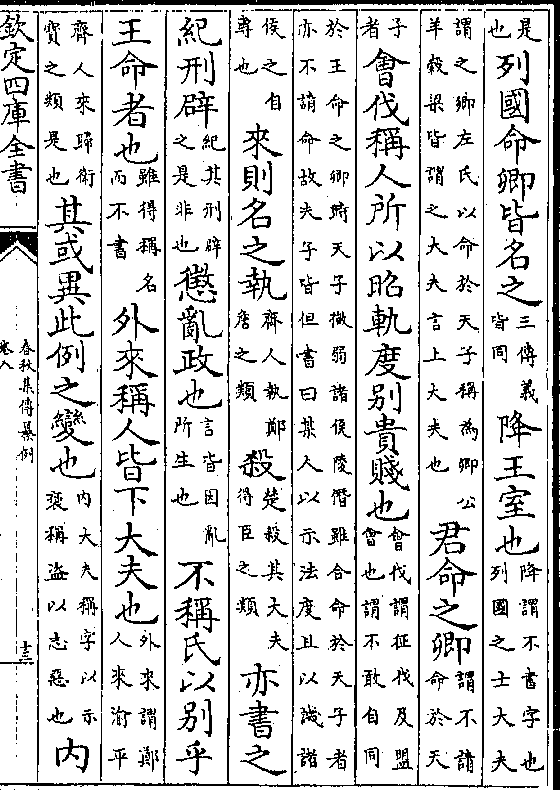 是也列國命卿皆名之三傳義皆同降王室也降謂不書字也列國之士大夫
謂之卿左氏以命於天子稱為卿公羊穀梁皆謂之大夫言上大夫也君命之卿謂不請命於天
子者會伐稱人所以昭軌度別貴賤也會伐謂征伐及盟會也謂不敢自同
於王命之卿時天子微弱諸侯陵僭雖合命於天子者亦不請命故夫子皆但書曰某人以示法度且以譏諸
侯之自專也來則名之執齊人執鄭詹之類殺楚殺其大夫得臣之類亦書之
紀刑辟紀其刑辟之是非也懲亂政也言皆因亂所生也不稱氏以別乎
王命者也雖得稱名而不書外來稱人皆下大夫也外來謂鄭人來渝平
齊人來歸衛寶之類是也其或異此例之變也內大夫稱字以示褒稱盜以志惡也內
欽定四庫全書
春秋集傳纂例
卷八
十三